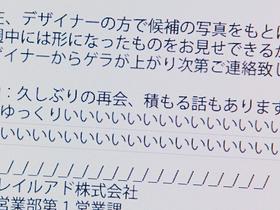 E、デザイナーの方で候補の写真をもとに
週中には形になったものをお見せできるか
ザイナーからゲラが上がり次第ご連絡致し
：久しぶりの再会、積もる話もあります
ゆっくりいいいいいいいいいいいいいいい
いいいいいいいいいいいいいいいいいいい
_/_/_/_/_/_/_/_/_/_/_/_/_/_/_/
レイルアド株式会社
営業部第１営業課